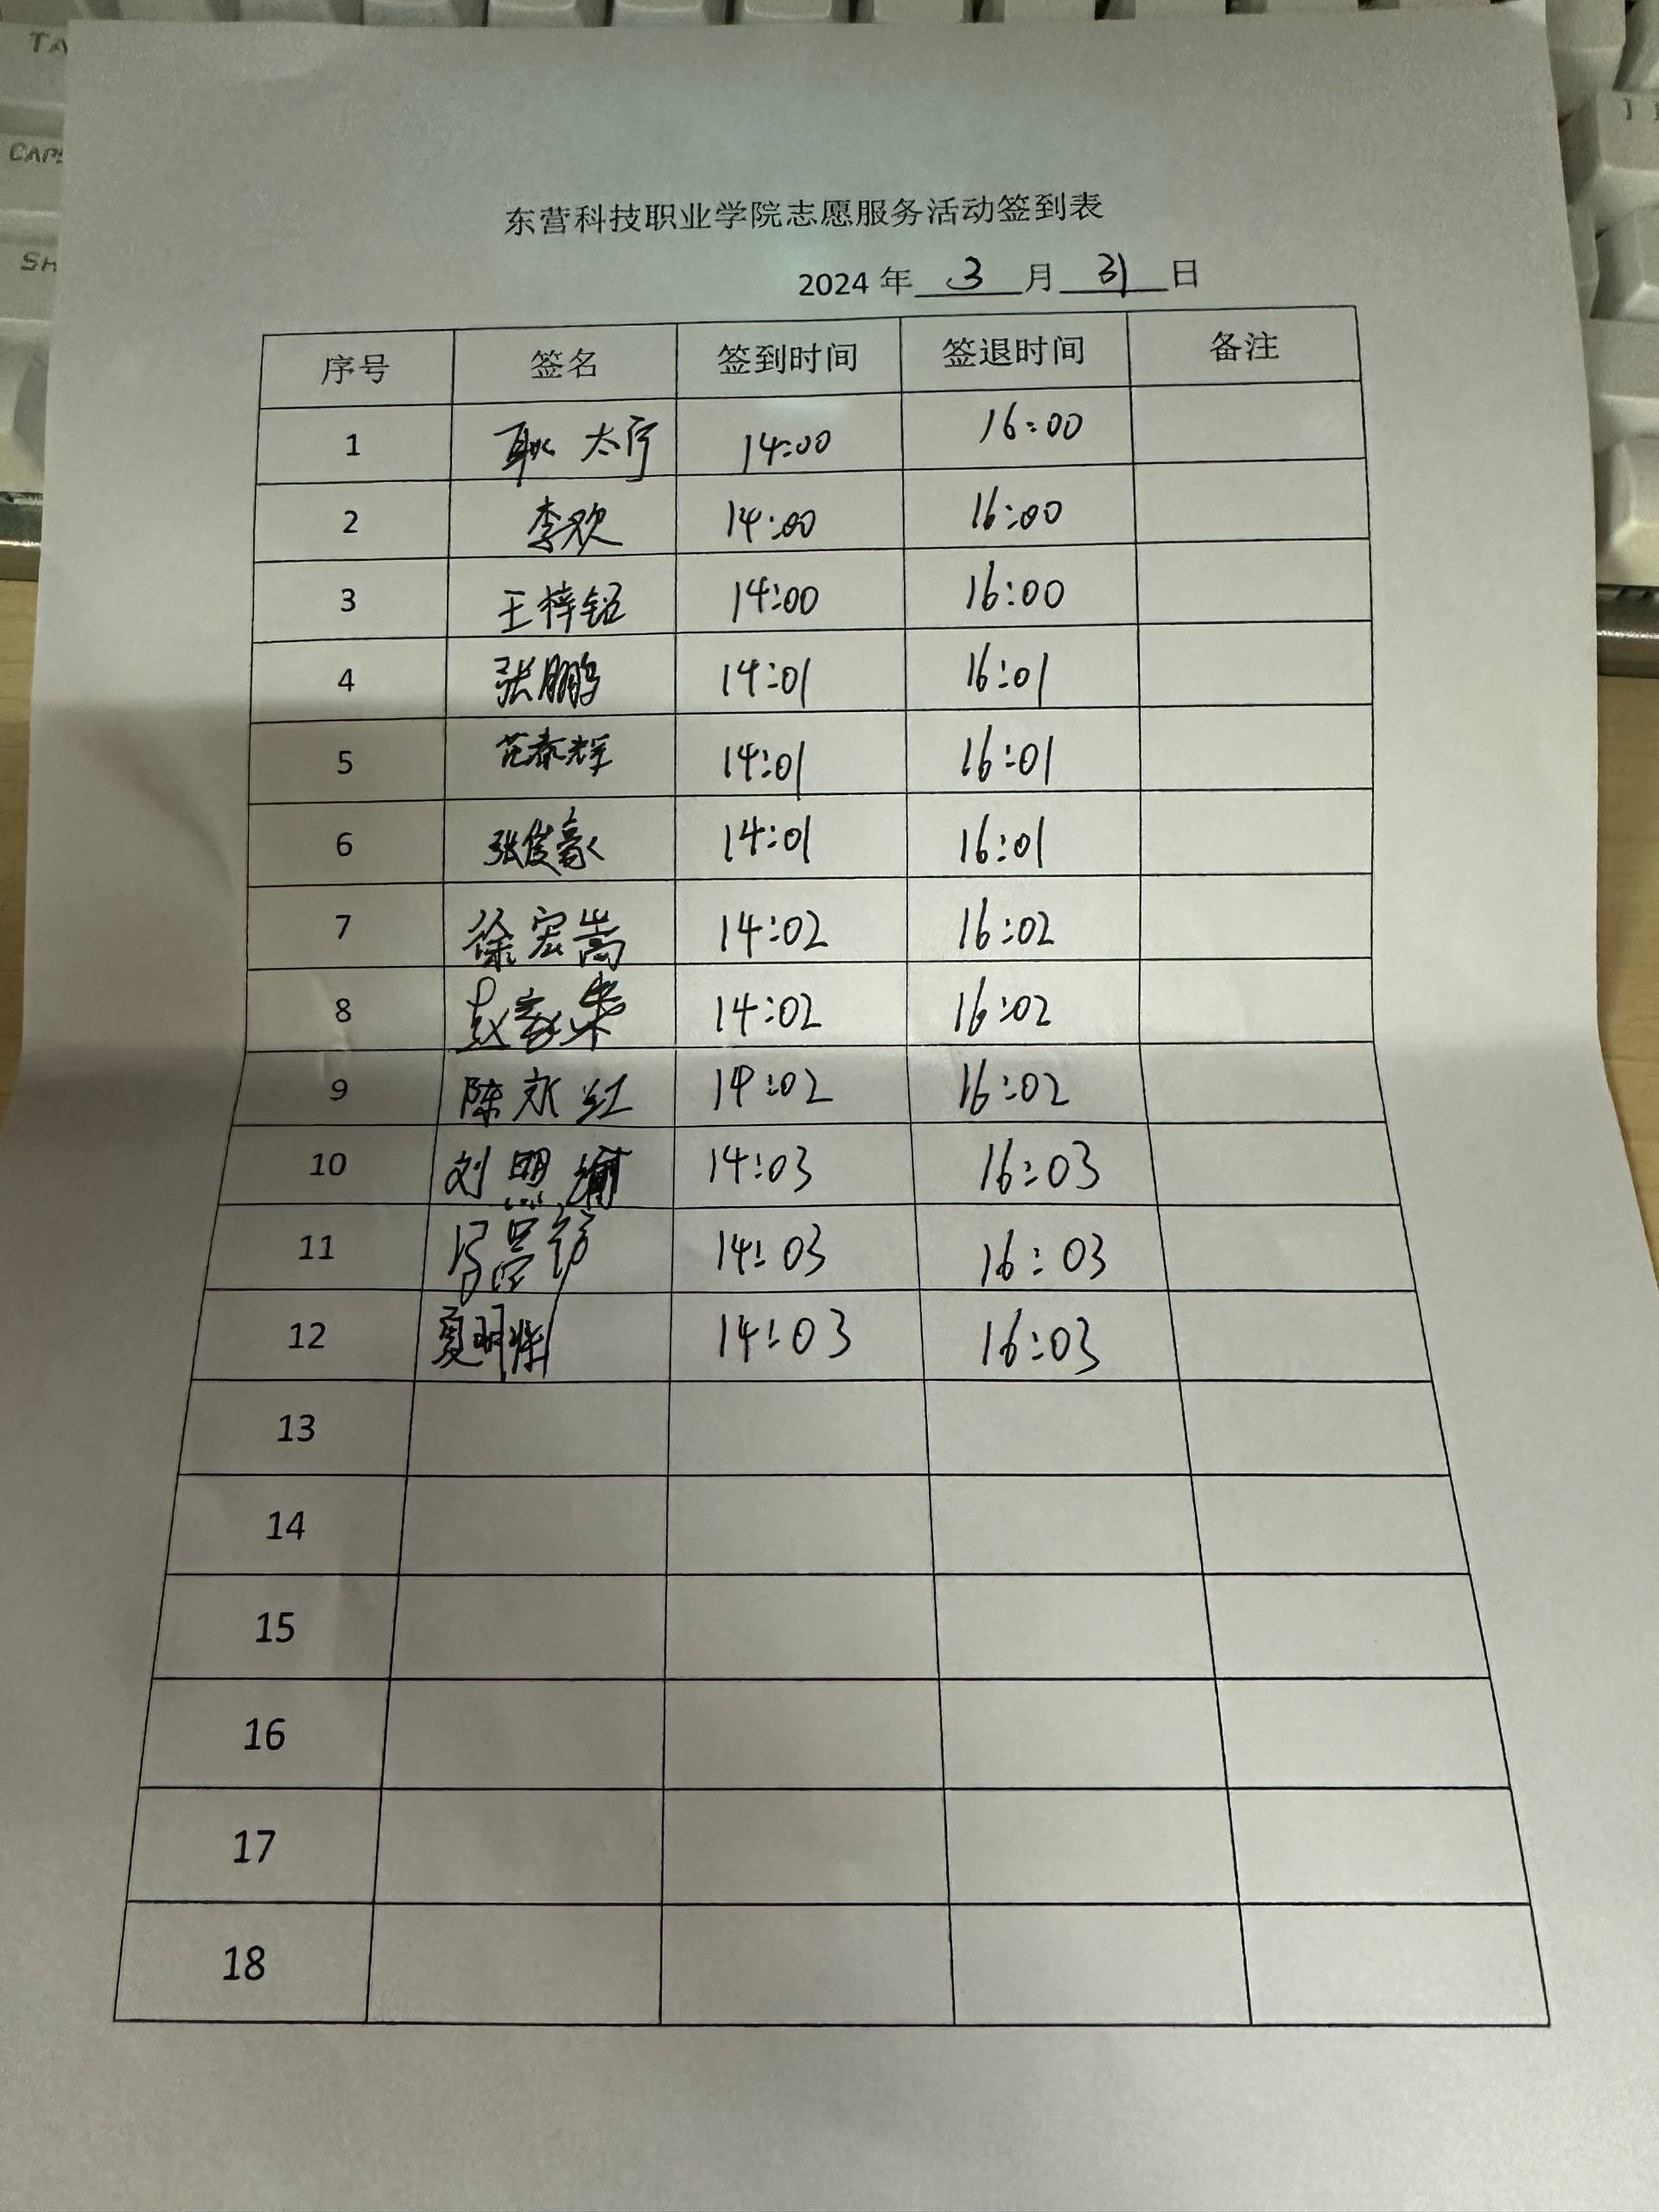 TA
CAPS
SH
东营科技职业学院志愿服务活动签到表
2024 年 3 月 31 日
序号 签名 签到时间 签退时间 备注
1 耿太宇 14:00 16:00
2 李欢 14:00 16:00
3 王梓铭 14:00 16:00
4 张鹏 14:01 16:01
5 范春辉 14:01 16:01
6 张俊豪 14:01 16:01
7 徐宏嵩 14:02 16:02
8 14:02 16:02
9 陈永红 14:02 16:02
10 刘照 14:03 16:03
11 14:03 16:03
12 夏明 14:03 16:03
13
14
15
16
17
18